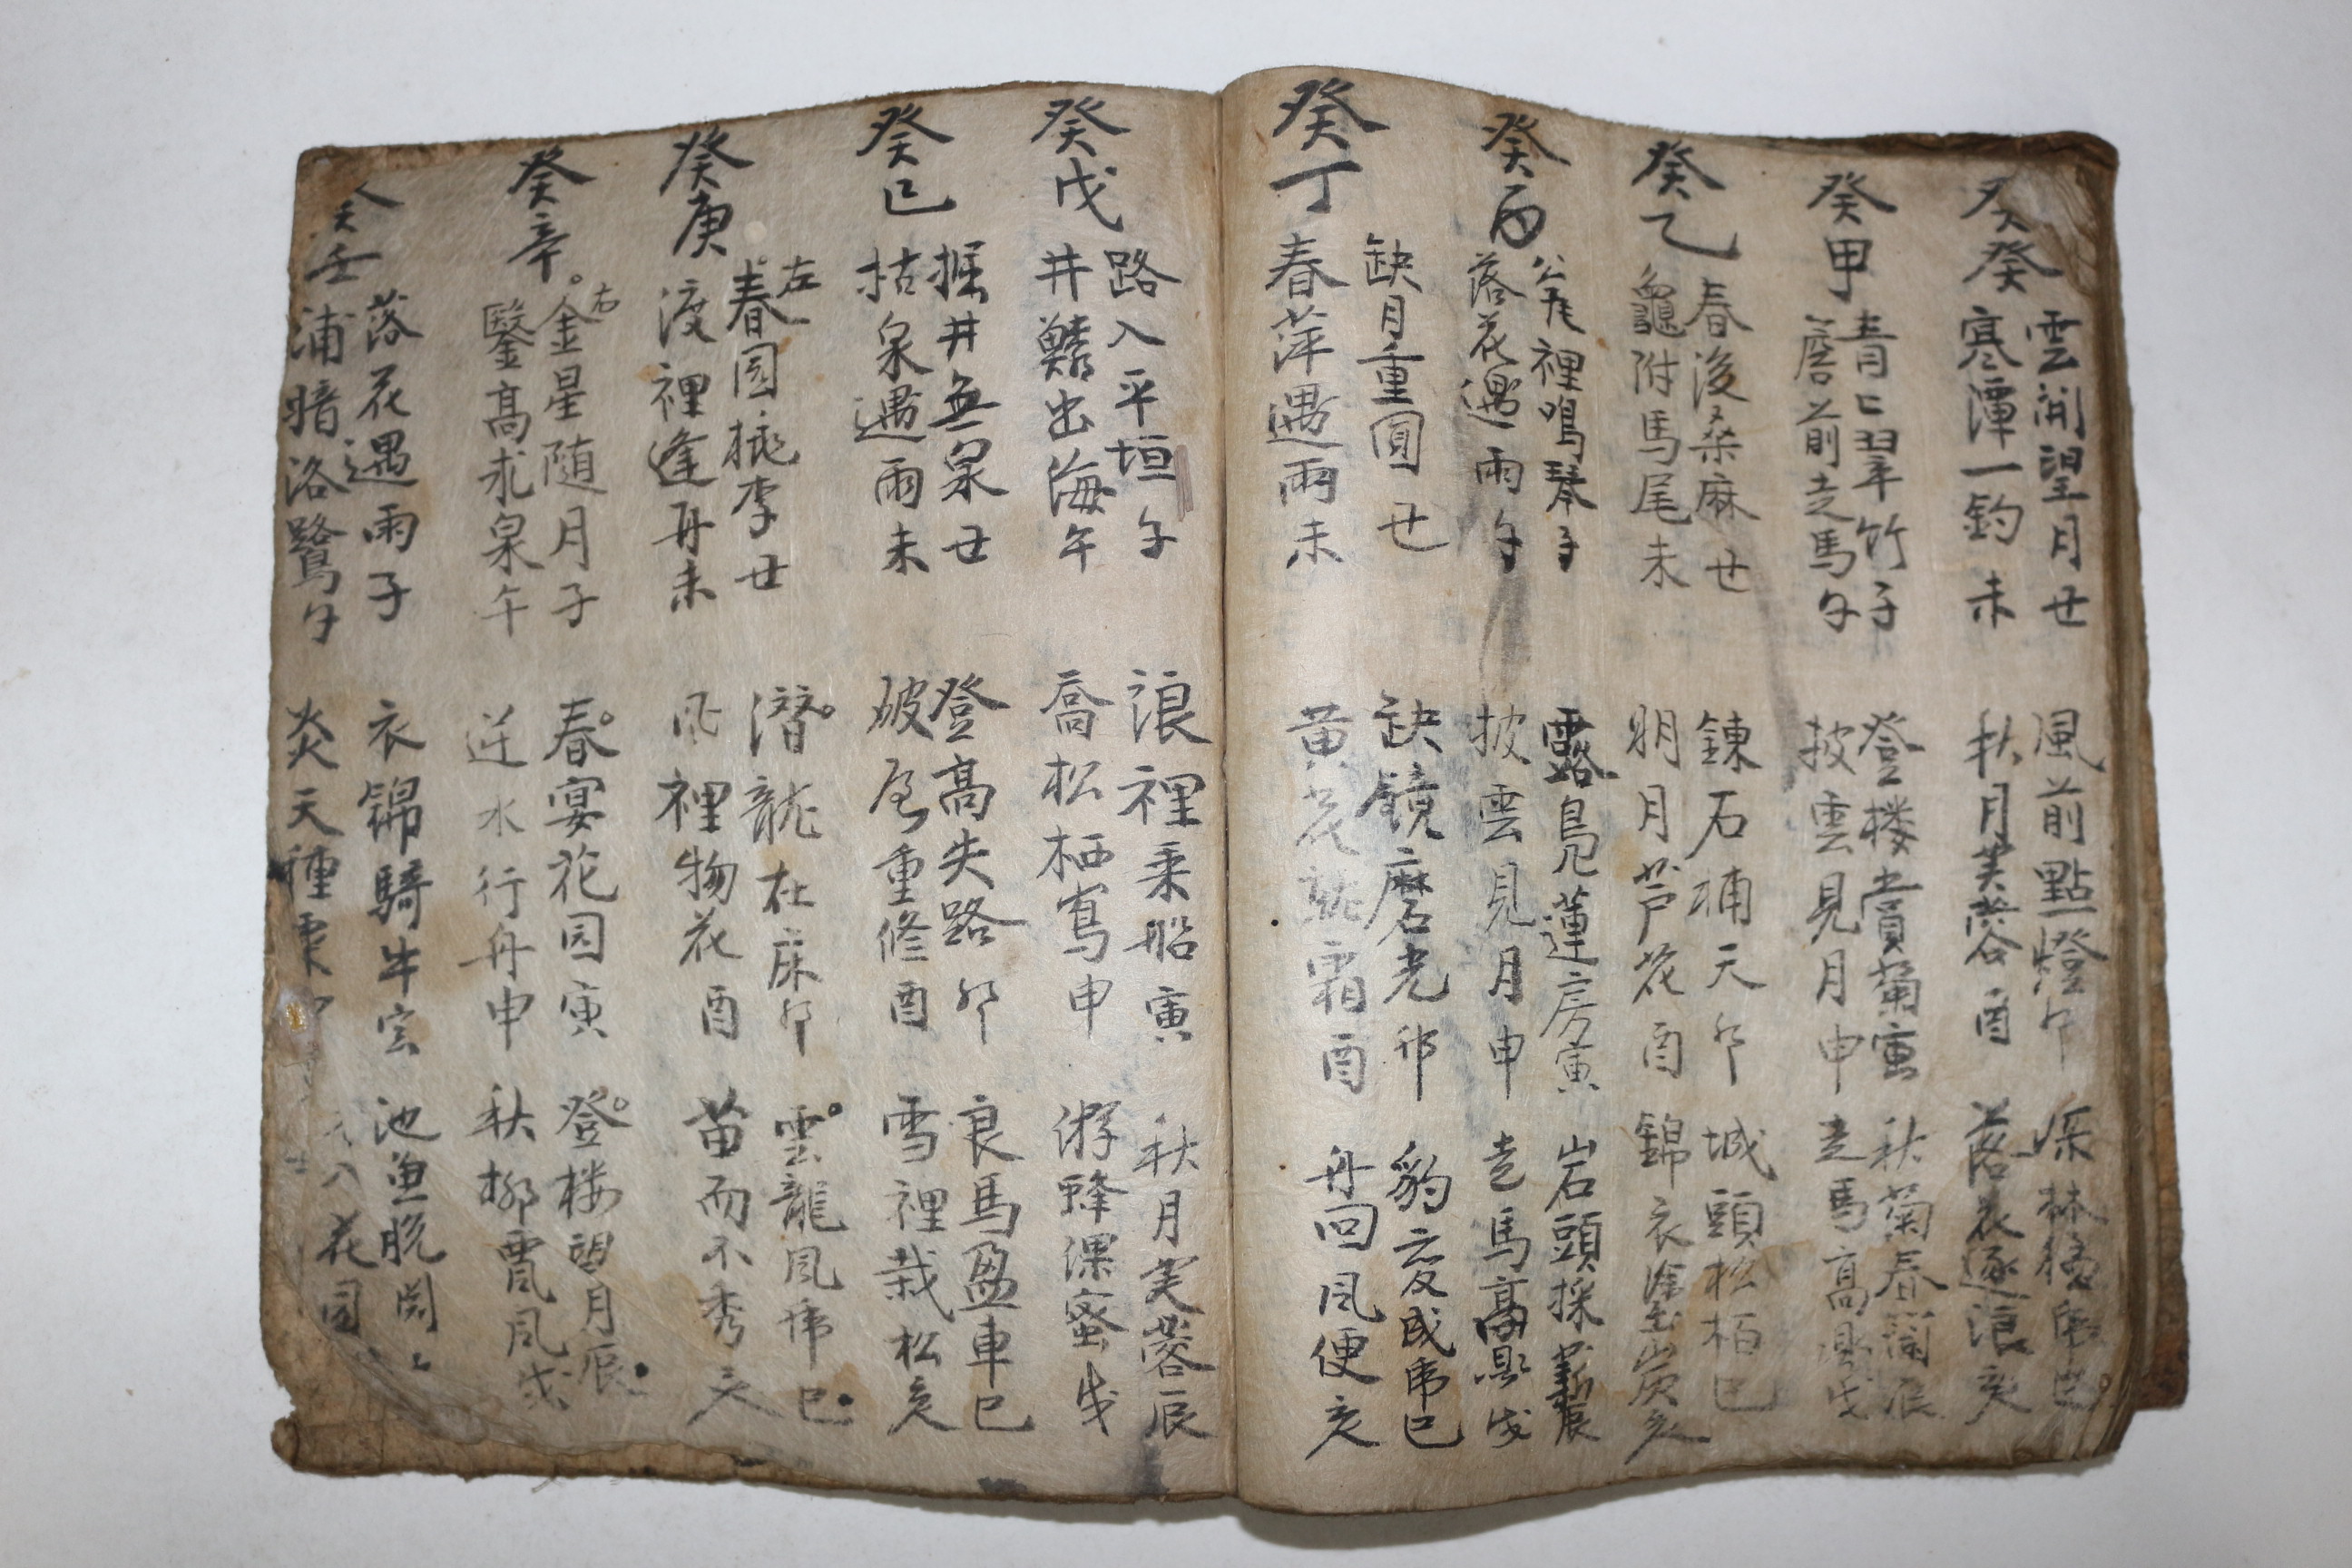 癸癸
雲開望月丑 風前點燈卯
寒潭一釣未 秋月芙蓉酉 落花逐浪亥
癸甲
青山翠竹子 登楼賞菊寅 秋菊春蘭辰
窓前走馬午 披雲見月申 走馬高 戌
癸乙
春後桑麻丑 鍊石補天卯 城頭松栢巳
龜附馬尾未 明月芦花酉 錦衣 亥
癸丙
裡鳴琴子 露 蓮房寅 岩頭採 辰
落花遇雨午 披雲見月申 走馬高 戌
癸丁
缺月重圓丑 缺鏡磨光卯 豹变成虎巳
春萍遇雨未 黄花 霜酉 舟回風便亥
癸戊
路入平垣子 浪裡乘船寅 秋月芙蓉辰
井 出海午 喬松栖鳥申 游蜂課蜜戌
癸己
掘井無泉丑 登高失路卯 良馬盈車巳
枯泉遇雨未 破屋重修酉 雪裡栽松亥
癸庚
左
春园桃李丑 潜龍在床卯 雲龍風虎巳
渡裡逢舟未 風裡物花酉 苗而不秀亥
癸辛
右
金星随月子 春宴花园寅 登楼望月辰
鑿高求泉午 逆水行舟申 秋柳 風戌
癸壬
落花遇雨子 衣錦騎牛寅 池魚脱
浦暗洛鷺午 炎天種粟 入花园